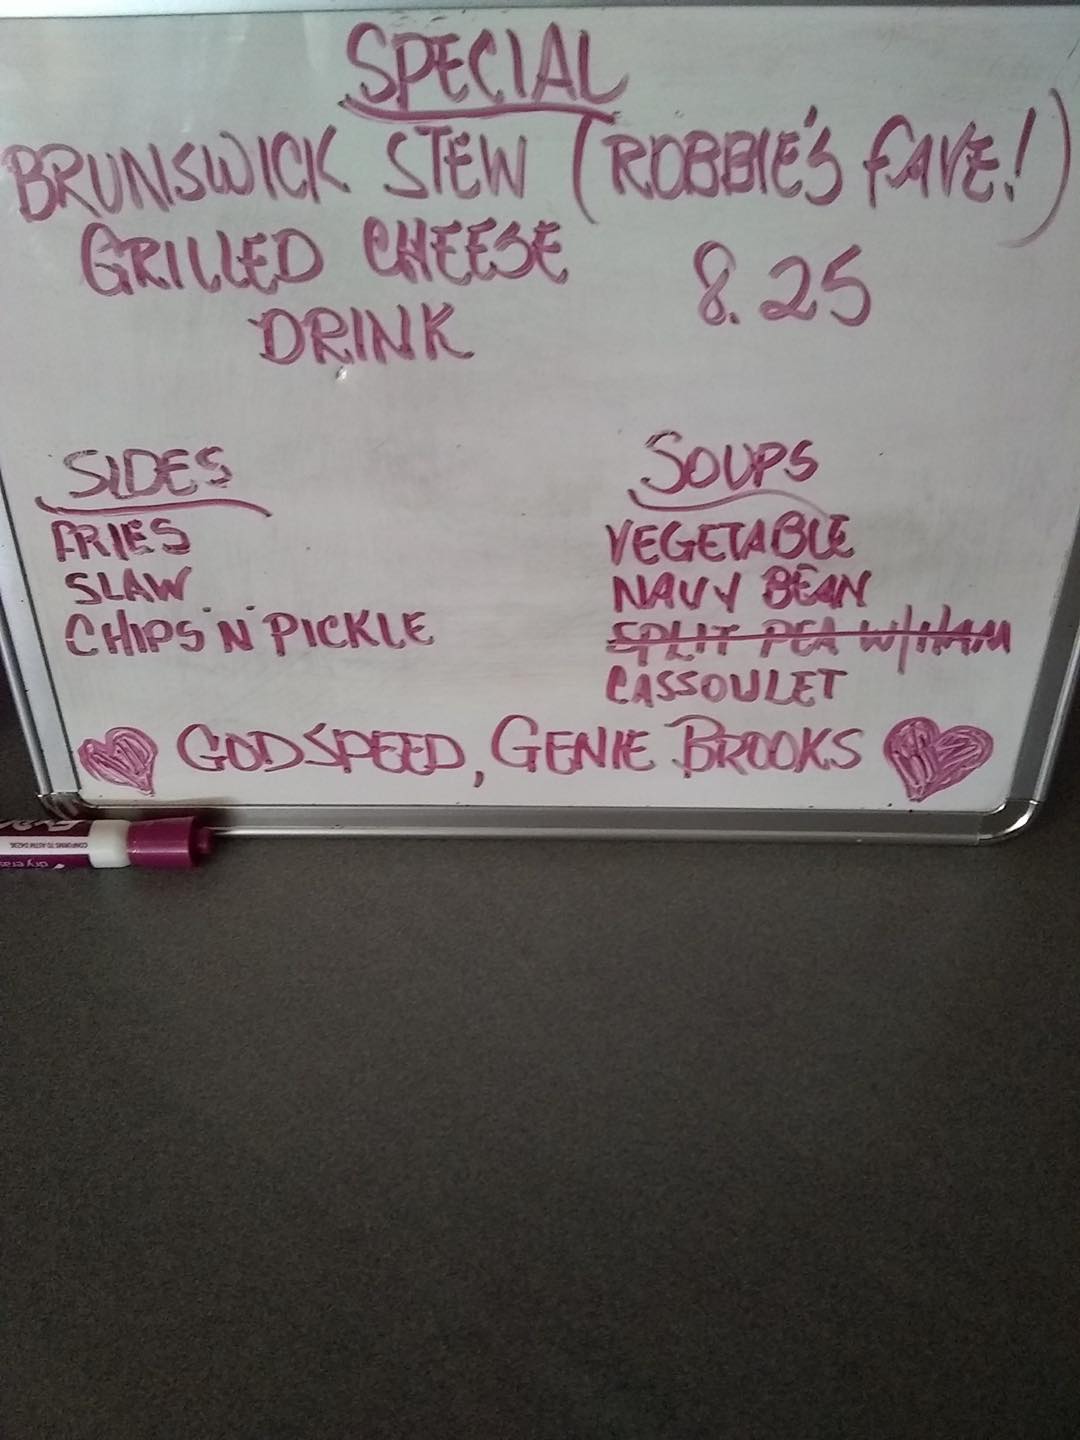 SPECIAL
BRUNSWICK STEW (ROBBIE'S FAVE!)
GRILLED CHEESE 8.25
DRINK
SIDES
FRIES
SLAW
CHIPS 'N' PICKLE
SOUPS
VEGETABLE
NAVY BEAN
SPLIT PEA W/HAM
CASSOULET
GODSPEED, GENIE BROOKS
CONFORMS TO ASTM D4236
dry eras